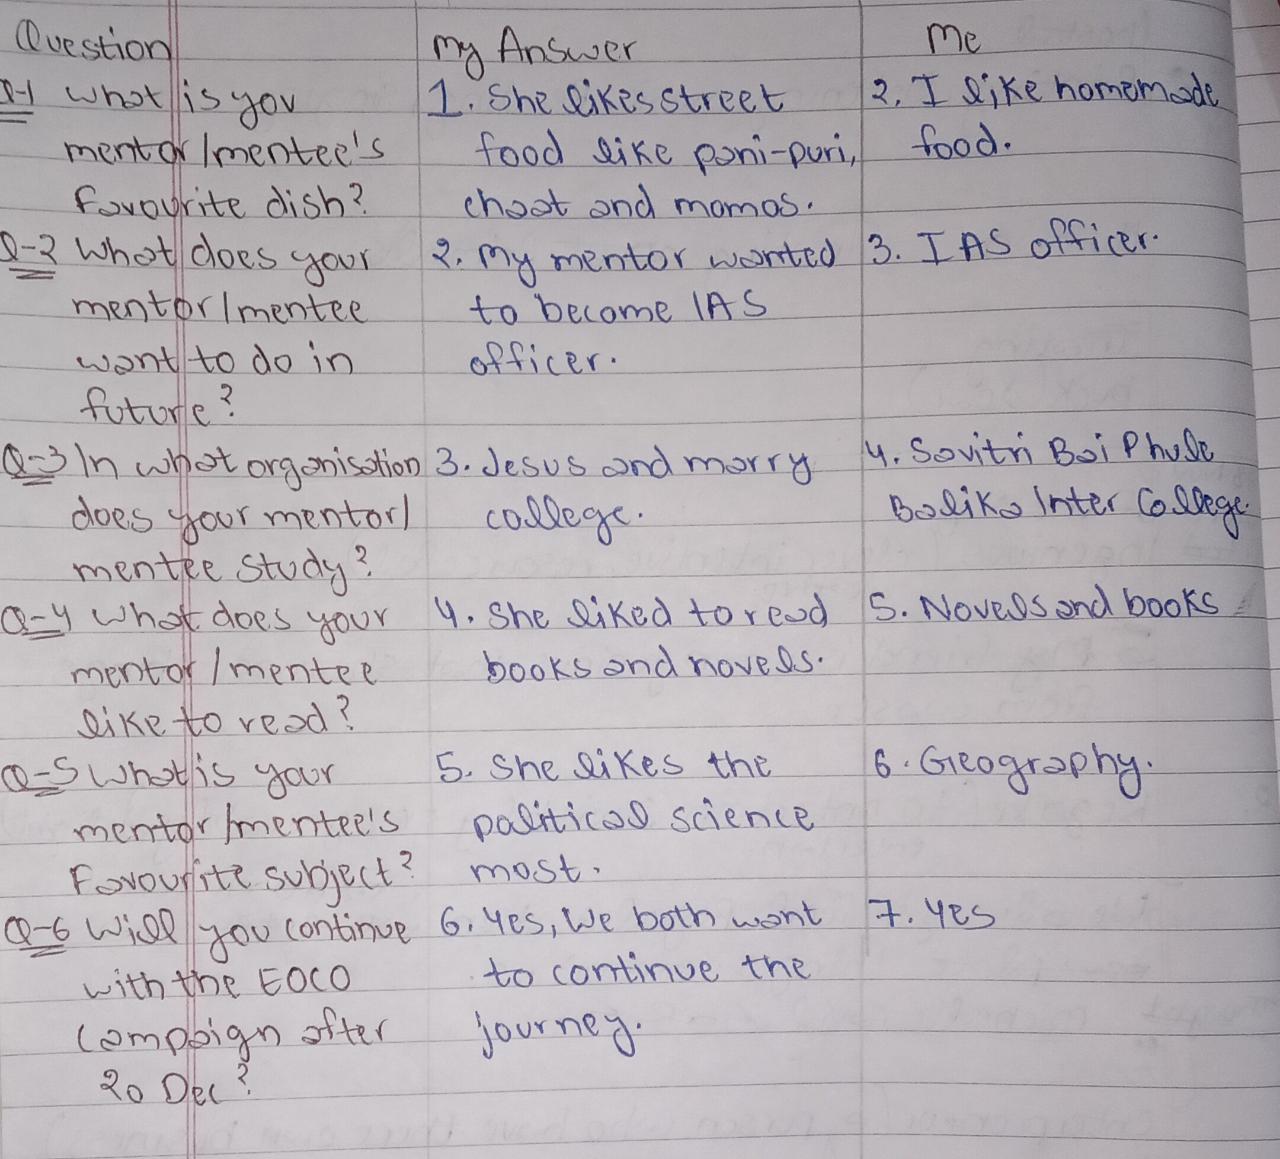 Question
my Answer
Me
Q-1 what is you
mentor/mentee's
favourite dish?
1. She likes street
food like pani-puri,
chaat and momos.
2. I like homemade
food.
Q-2 What does your
mentor/mentee
want to do in
future?
2. My mentor wanted
to become IAS
officer.
3. IAS officer.
Q-3 In what organisation
does your mentor/
mentee study?
3. Jesus and marry
college.
4. Savitri Bai Phule
Balika Inter College.
Q-4 What does your
mentor/mentee
like to read?
4. She liked to read
books and novels.
5. Novels and books
Q-5 What is your
mentor/mentee's
Favourite subject?
5. She likes the
political science
most.
6. Geography.
Q-6 Will you continue
with the EOCO
campaign after
20 Dec?
6. Yes, We both want
to continue the
journey.
7. Yes